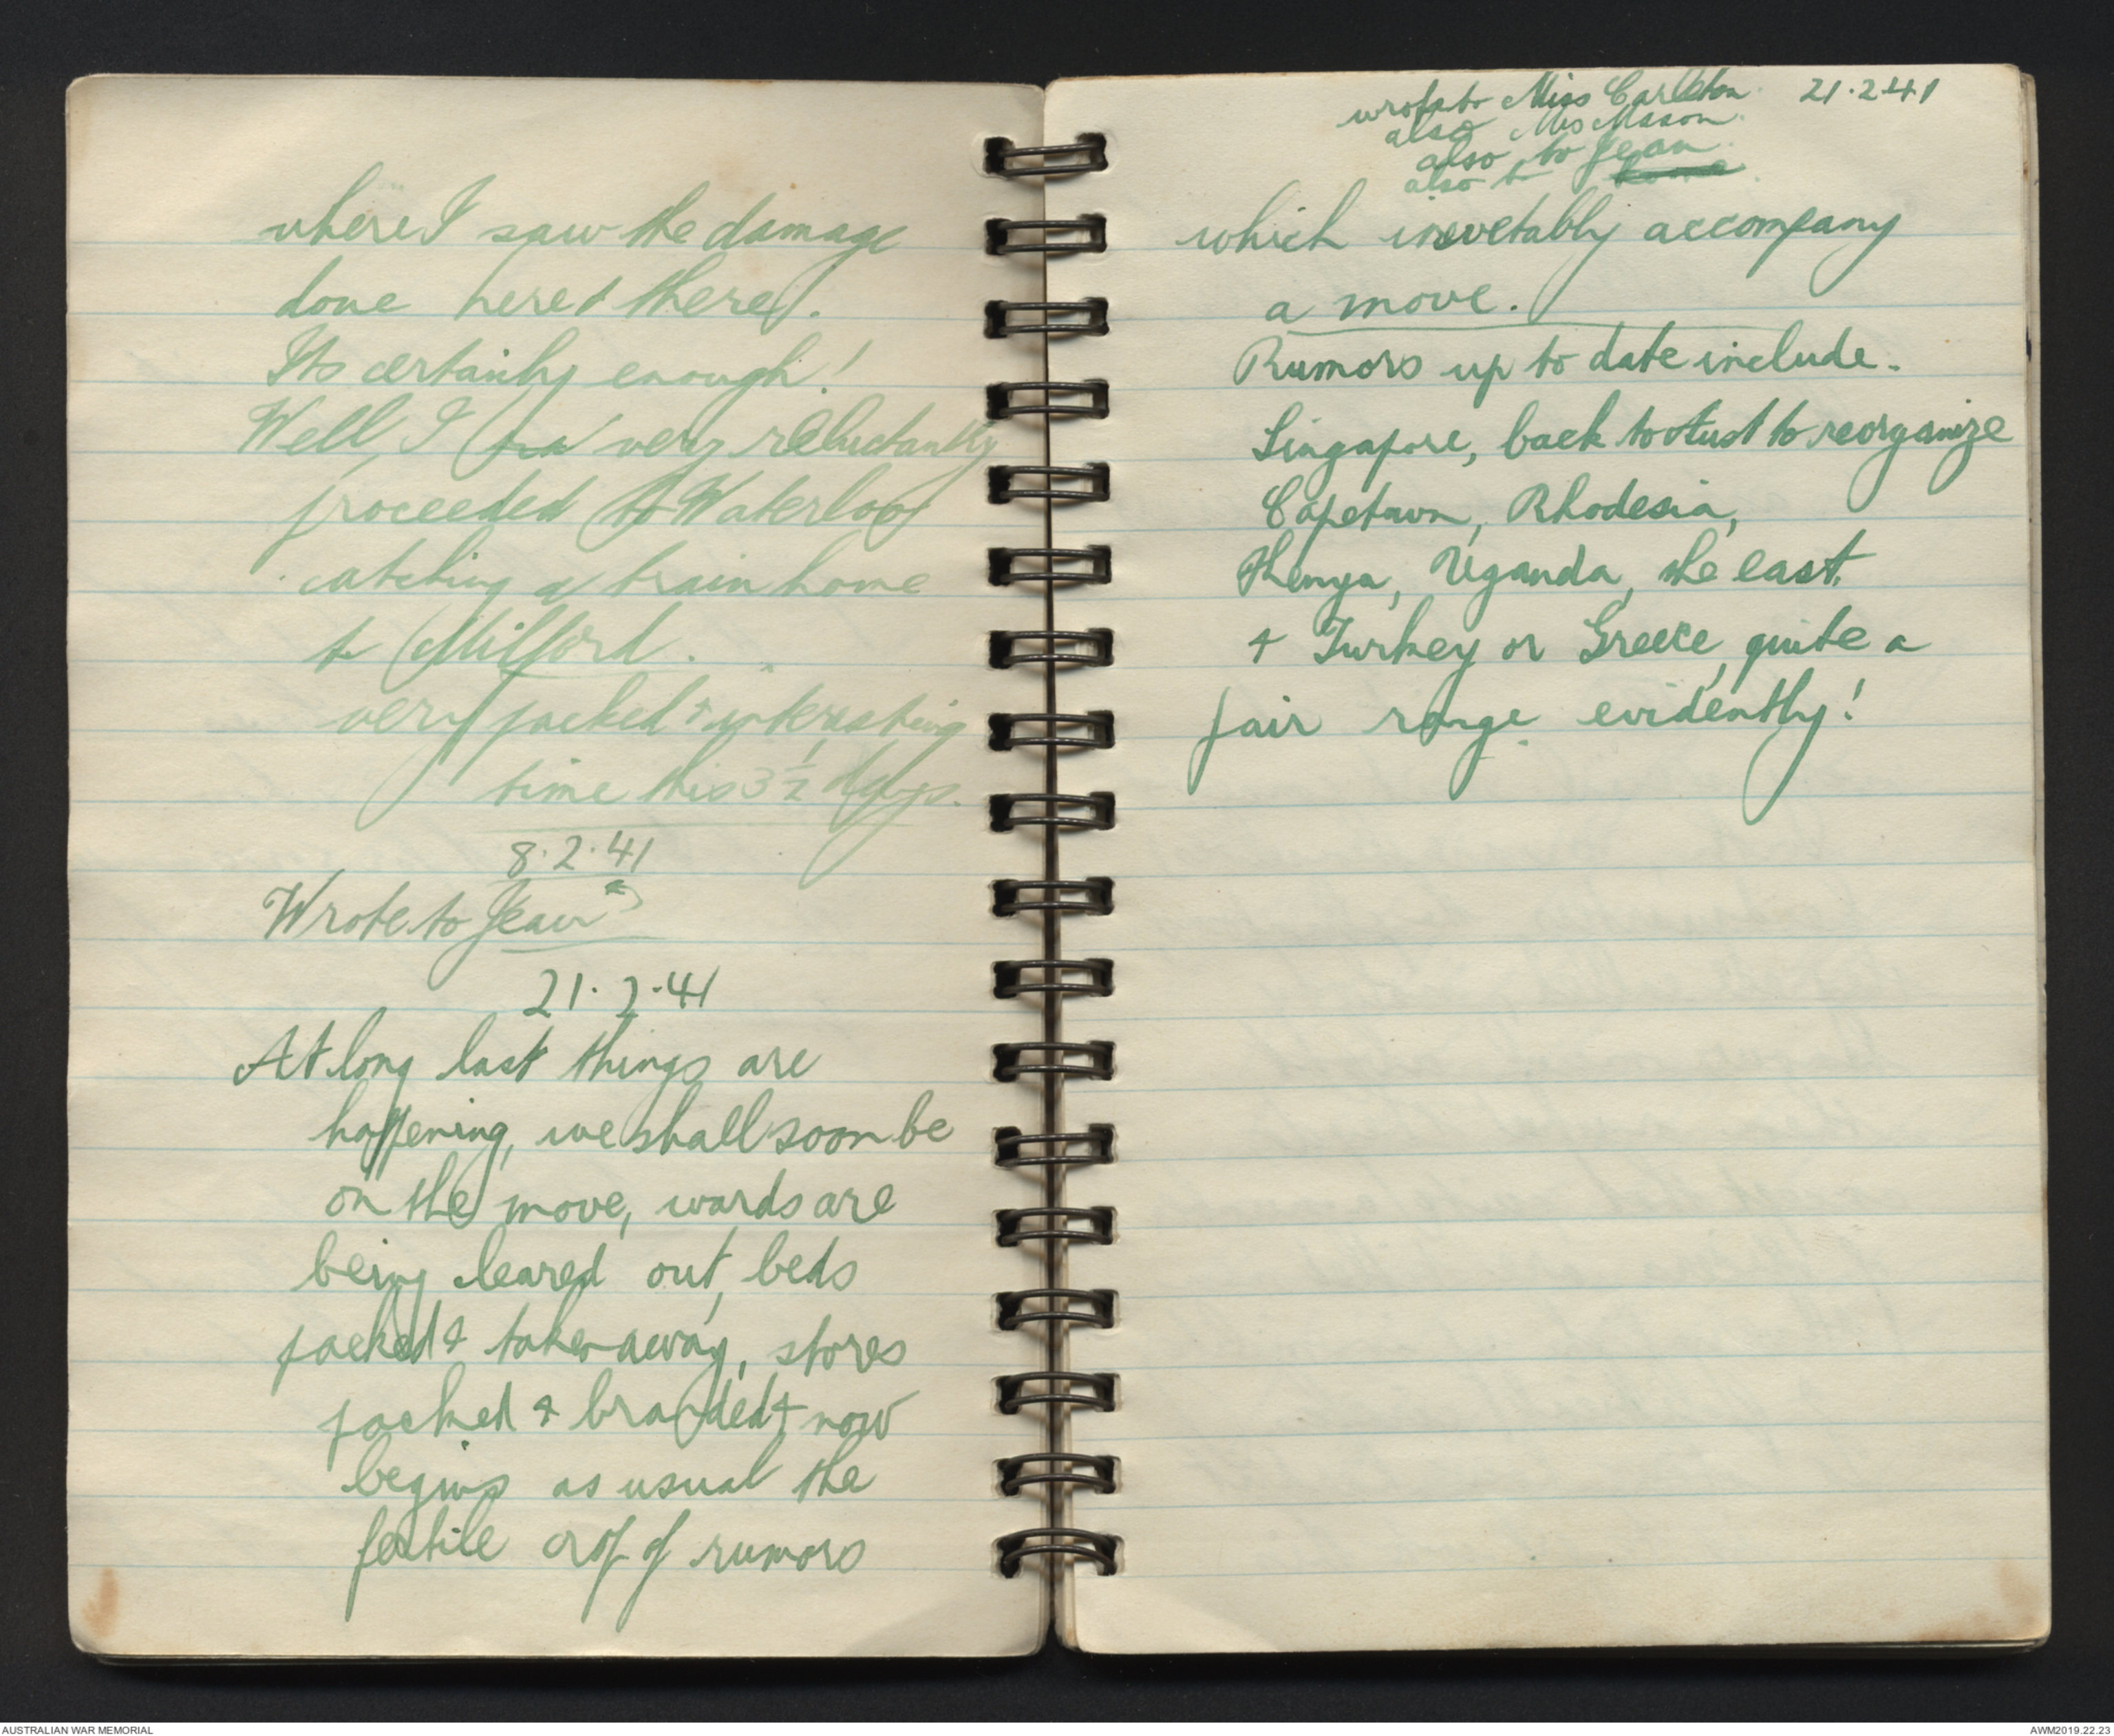 where I saw the damage
done here & there.
Its certainly enough!
Well, I very reluctantly
proceeded to Waterloo
catching a train home
to Milford.
very packed & interesting
time this 3 1/2 days.
8.2.41
Wrote to Jean
21.2.41
At long last things are
happening, we shall soon be
on the move, wards are
being cleared out, beds
packed & taken away, stores
packed & branded & now
begins as usual the
fertile crop of rumors
wrote to Miss Carleton 21.2.41
also Mrs Mason.
also to Jean
also to home
which inevetably accompany
a move.
Rumors up to date include.
Singapore, back to Aust to reorganize
Capetown, Rhodesia,
Kenya, Uganda, the east,
& Turkey or Greece, quite a
fair range evidently!
AUSTRALIAN WAR MEMORIAL
AWM2019.22.23